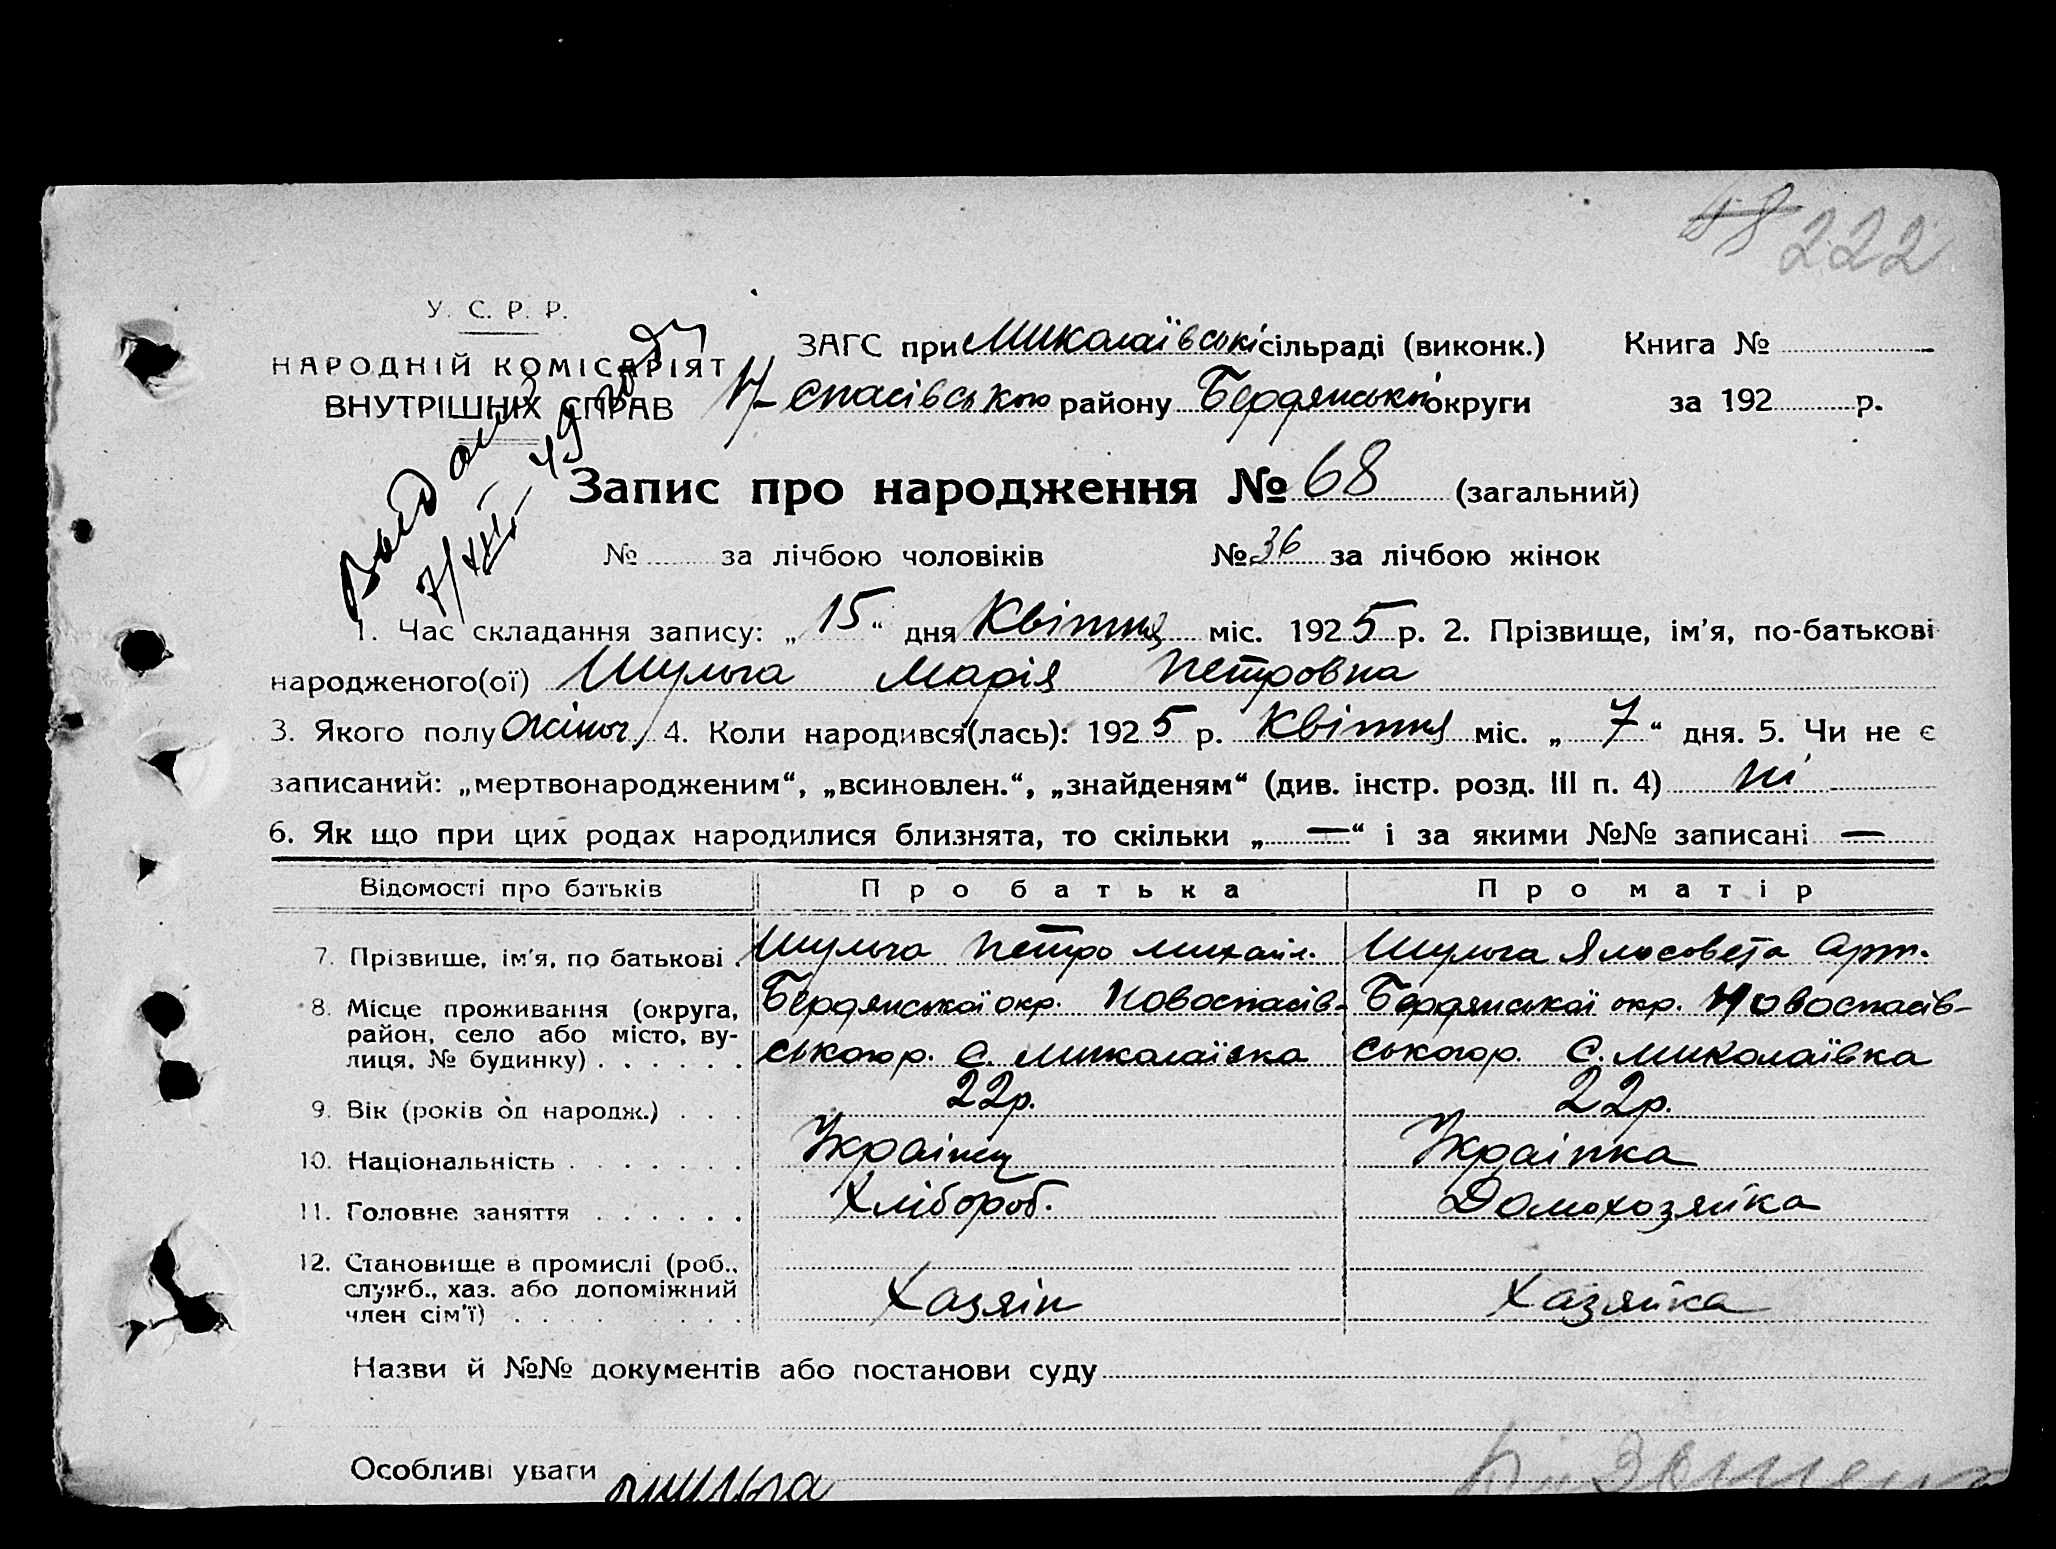 48 222
У. С. Р. Р.
НАРОДНІЙ КОМІСАРІЯТ
ВНУТРІШНІХ СПРАВ
ЗАГС при Миколаївські сільраді (виконк.) Книга №
Н-спасівського району Бердянської округи за 192 р.
7/XII-49
Запис про народження № 68 (загальний)
№ за лічбою чоловіків № 36 за лічбою жінок
1. Час складання запису: „15“ дня Квітня міс. 1925 р. 2. Прізвище, ім'я, по-батькові
народженого(ої) Шульга Марія Петровна
3. Якого полу жіноч. 4. Коли народився(лась): 1925 р. Квітня міс. „7“ дня. 5. Чи не є
записаний: „мертвонародженим“, „всиновлен.“, „знайденям“ (див. інстр. розд. III п. 4) ні
6. Як що при цих родах народилися близнята, то скільки „—“ і за якими №№ записані —
Відомості про батьків Про батька Про матір
7. Прізвище, ім'я, по батькові . Шульга Петро Михайл. Шульга Ялисовета Арт.
8. Місце проживання (округа, район, село або місто, вулиця, № будинку) . . . . . . Бердянської окр. Новоспасів-
ського р. с. Миколаївка Бердянської окр. Новоспасів-
ського р. с. Миколаївка
9. Вік (років од народж.) . . . 22р. 22р.
10. Національність . . . . . . . Українец Українка
11. Головне заняття . . . . . . Хлібороб. Домохозяйка
12. Становище в промислі (роб., служб., хаз. або допоміжний член сім'ї) . . . . . . . . Хазяін Хазяйка
Назви й №№ документів або постанови суду
Особливі уваги